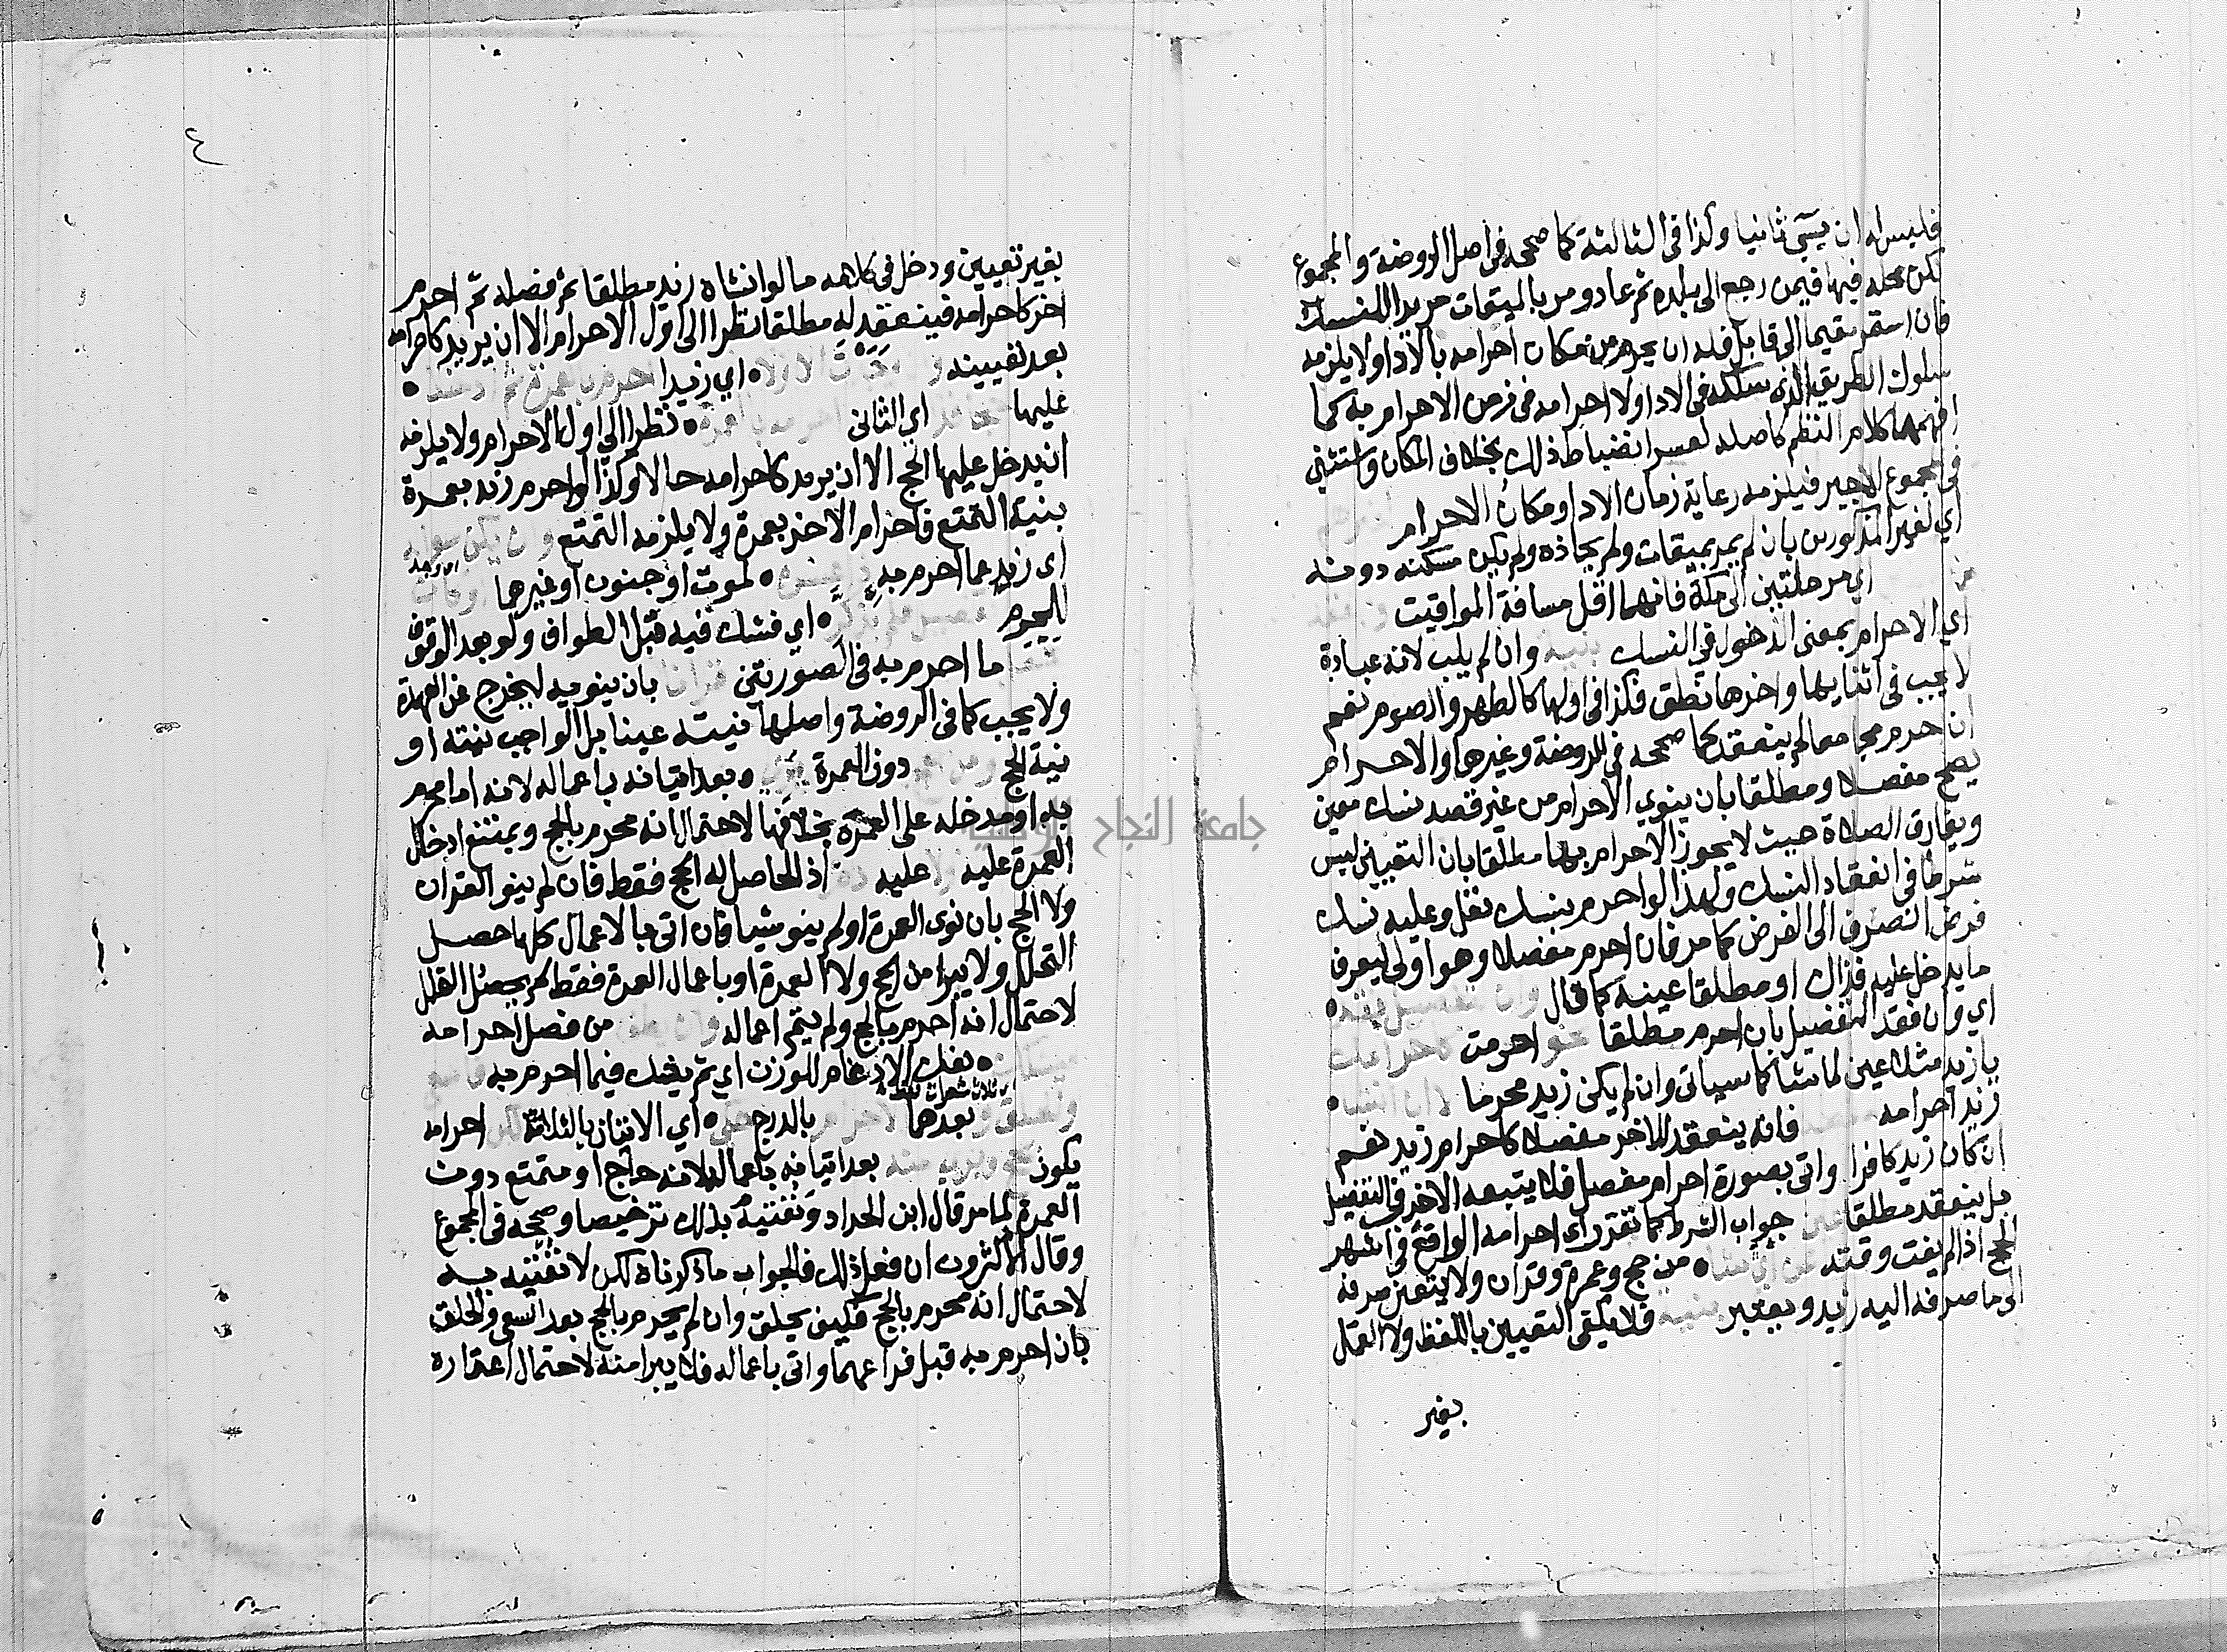 فليس له ان يسى ثانيا وكذا فى الثالثة كما صححه فى اصل الروضة والمجموع
لكن محله فيها فيمن رجع الى بلده ثم عاد ومر بالميقات مريدا للنسك
فان استمر مقيما الى قابل فله ان يحرم من مكان احرامه بالادا ولا يلزمه
سلوك الطريق الذى سلكه فى الادا ولا احرامه فى زمن الاحرام به كما
افهمها كلام النظم كاصله لعسر انضباط ذلك بخلاف المكان واستثنى
فى المجموع الاجير فيلزمه رعاية زمان الادا ومكان الاحرام
اى لغير المذكورين بان لم يمر بميقات ولم يحاذه ولم يكن مسكنه دونه
اى مرحلتين الى مكة فانهما اقل مسافة المواقيت
اى الاحرام بمعنى الدخول فى النسك بنيه وان لم يلب لانه عبادة
لا يجب فى اثنايها واخرها نطق فكذا فى اولها كالطهر والصوم نعم
ان احرم مجامعا لم ينعقد كما صححه فى الروضة وغيرها والاحرام
يصح مفصلا ومطلقا بان ينوي الاحرام من غير قصد نسك معين
ويفارق الصلاة حيث لا يجوز الاحرام بها مطلقا بان التعيين ليس
شرطا فى انعقاد النسك ولهذا لو احرم بنسك نفل وعليه نسك
فرض انصرف الى الفرض كما مر فان احرم مفصلا وهو اولى ليعرف
ما يدخل عليه فذاك او مطلقا عينه كما قال وان تفصيل فقد
اي وان فقد التفصيل بان احرم مطلقا نحو احرمت كاحرامك
يا زيد مثلا عين لما شا كما سياتى وان لم يكن زيد محرما
زيد احرامه فانه ينعقد للاخر مفصلا كاحرام زيد نعم
ان كان زيد كافرا واتى بصورة احرام مفصل فلا يتبعه الاخر فى التفصيل
بل ينعقد مطلقا عين جواب الشرط كما تقرر اى احرامه الواقع فى اشهر
الحج اذا لم يفت وقته من حج وعمرة وقران ولا يتعين صرفه
الى ما صرفه اليه زيد ويعتبر بنيه فلا يكفى التعيين باللفظ ولا العمل
بغير
٤
بغير تعيين ودخل فى كلامه ما لو انشاه زيد مطلقا ثم فصله ثم احرم
اخر كاحرامه فينعقد له مطلقا نظرا الى اول الاحرام الا ان يريد كاحرامه
بعد تعيينه اي زيدا احرم بعمرة ثم ادخل
عليها حجا اي الثانى بعمرة نظرا الى اول الاحرام ولا يلزمه
ان يدخل عليها الحج الا ان يريد كاحرامه حالا وكذا لو احرم زيد بعمرة
بنية التمتع فاحرام الاخر بعمرة ولا يلزمه التمتع وان يكن سواله
اى زيد عما احرم به لموت او جنون او غيرهما اوفات
المحرم اي فشك فيه قبل الطواف ولو بعد الوقوف
ما احرم به فى الصورتين قرانا بان ينويه ليخرج عن العهدة
ولا يجب كما فى الروضة واصلها نيته عينا بل الواجب نيته او
نية الحج ومن حج دون العمرة بعد اتيانه باعماله لانه اما محرم
به او مدخله على العمرة بخلافها لاحتمال انه محرم بالحج ويمتنع ادخال
العمرة عليه ولا عليه دم اذ الحاصل له الحج فقط فان لم ينو القران
ولا الحج بان نوى العمرة او لم ينو شيا فان اتى بالاعمال كلها حصل
التحلل ولا يبرا من الحج ولا العمرة او باعمال العمرة فقط لم يحصل التحلل
لاحتمال انه احرم بالحج ولم يتم اعماله وان يطف من فصل احرامه
بفك الادغام للوزن اي ثم يشك فيما احرم به
بعدها ثلاث شعرات بالدرج اي الاتيان بالثلاثة احرامه
يكون بحج بعد اتيانه باعماله لانه حاج او متمتع دون
العمرة لما مر قال ابن الحداد ونفتيه بذلك ترخيصا وصححه فى المجموع
وقال الاكثرون ان فعل ذلك فالجواب ما ذكرناه لكن لا نفتيه به
لاحتمال انه محرم بالحج فكيف يحلق وان لم يحرم بالحج بعد السعى والحلق
بان احرم به قبل فراغهما واتى باعماله فلا يبرا منه لاحتمال اعتماره
جامعة النجاح الوطنية